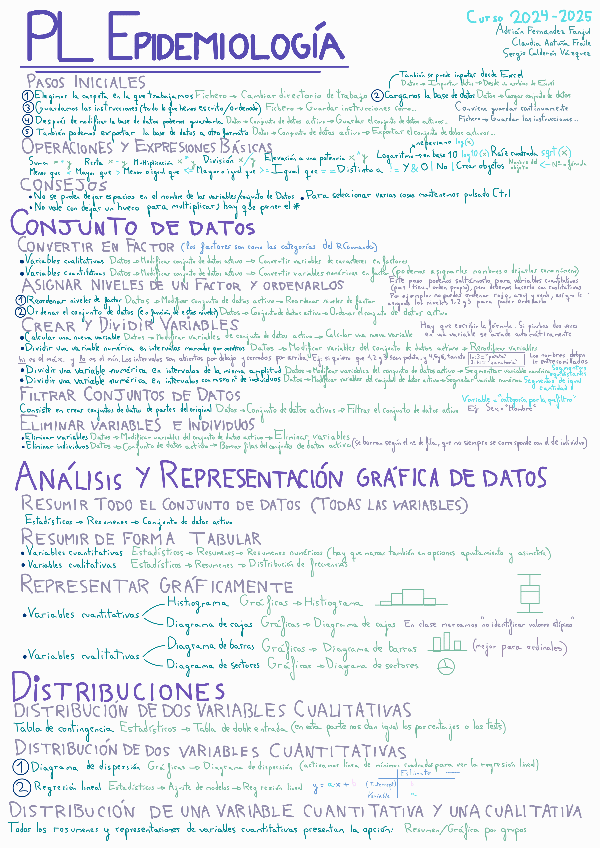 PL EPIDEMIOLOGÍA
CURSO 2024-2025
Adrián Fernández Fanjul
Claudia Antuña Fraile
Sergio Calderón Vázquez
PASOS INICIALES
También se puede importar desde Excel
Datos → Importar datos → Desde un archivo de Excel
① Elegimos la carpeta en la que trabajamos Fichero → Cambiar directorio de trabajo
② Cargamos la base de datos Datos → Cargar conjunto de datos
③ Guardamos las instrucciones (todo lo que hemos escrito/ordenado) Fichero → Guardar instrucciones como...
Conviene guardar continuamente
Fichero → Guardar las instrucciones...
④ Después de modificar la base de datos podemos guardarla Datos → Conjunto de datos activo → Guardar el conjunto de datos activo...
⑤ También podemos exportar la base de datos a otro formato Datos → Conjunto de datos activo → Exportar el conjunto de datos activo...
OPERACIONES Y EXPRESIONES BÁSICAS
Suma x+y Resta x-y Multiplicación x*y División x/y Elevación a una potencia x^y Logaritmo en base 10 log10(x) Raíz cuadrada sqrt(x)
neperiano log(x)
Menor que < Mayor que > Menor o igual que <= Mayor o igual que >= Igual que == Distinto a != Y & O | No ! Crear objetos
CONSEJOS
• No se puede dejar espacios en el nombre de las variables/conjunto de Datos
• Para seleccionar varias cosas mantenemos pulsado Ctrl
• No vale con dejar un hueco para multiplicar, hay que poner el *
CONJUNTO DE DATOS
CONVERTIR EN FACTOR (los factores son como las categorías del RCommander)
• Variables cualitativas Datos → Modificar conjunto de datos activo → Convertir variables de caracteres en factores
• Variables cuantitativas Datos → Modificar conjunto de datos activo → Convertir variables numéricas en factor (podemos asignarles nombres o dejarlas como números)
ASIGNAR NIVELES DE UN FACTOR Y ORDENARLOS
① Reordenar niveles de factor Datos → Modificar conjunto de datos activo → Reordenar niveles de factor
② Ordenar el conjunto de datos Datos → Conjunto de datos activo → Ordenar el conjunto de datos activo
CREAR Y DIVIDIR VARIABLES
• Calcular una nueva variable Datos → Modificar variables del conjunto de datos activo → Calcular una nueva variable
• Dividir una variable numérica en intervalos marcados por nosotros Datos → Modificar variables del conjunto de datos activo → Recodificar variables
• Dividir una variable numérica en intervalos de la misma amplitud Datos → Modificar variables del conjunto de datos activo → Segmentar variable numérica
• Dividir una variable numérica en intervalos con mismo nº de individuos Datos → Modificar variables del conjunto de datos activo → Segmentar variable numérica
FILTRAR CONJUNTOS DE DATOS
Consiste en crear conjuntos de datos de partes del original Datos → Conjunto de datos activo → Filtrar el conjunto de datos activo
Ej: Sexo=="Hombre"
ELIMINAR VARIABLES E INDIVIDUOS
• Eliminar variables Datos → Modificar variables del conjunto de datos activo → Eliminar variables
• Eliminar individuos Datos → Conjunto de datos activo → Borrar filas del conjunto de datos activo (se borra según el nº de fila, que no siempre se corresponde con el de individuo)
ANÁLISIS Y REPRESENTACIÓN GRÁFICA DE DATOS
RESUMIR TODO EL CONJUNTO DE DATOS (TODAS LAS VARIABLES)
Estadísticos → Resúmenes → Conjunto de datos activo
RESUMIR DE FORMA TABULAR
• Variables cuantitativas Estadísticos → Resúmenes → Resúmenes numéricos (hay que marcar también en opciones apuntamiento y asimetría)
• Variables cualitativas Estadísticos → Resúmenes → Distribución de frecuencias
REPRESENTAR GRÁFICAMENTE
• Variables cuantitativas
Histograma Gráficas → Histograma
Diagrama de cajas Gráficas → Diagrama de cajas En clase marcamos "no identificar valores atípicos"
• Variables cualitativas
Diagrama de barras Gráficas → Diagrama de barras (mejor para ordinales)
Diagrama de sectores Gráficas → Diagrama de sectores
DISTRIBUCIONES
DISTRIBUCIÓN DE DOS VARIABLES CUALITATIVAS
Tabla de contingencia Estadísticos → Tabla de doble entrada (en esta parte nos dan igual los porcentajes o los tests)
DISTRIBUCIÓN DE DOS VARIABLES CUANTITATIVAS
① Diagrama de dispersión Gráficas → Diagrama de dispersión (activamos línea de mínimos cuadrados para ver la regresión lineal)
② Regresión lineal Estadísticos → Ajuste de modelos → Regresión lineal y = ax +
Estimate
(Intercept)
Variable
DISTRIBUCIÓN DE UNA VARIABLE CUANTITATIVA Y UNA CUALITATIVA
Todos los resúmenes y representaciones de variables cuantitativas presentan la opción: Resumen/Gráfica por grupos